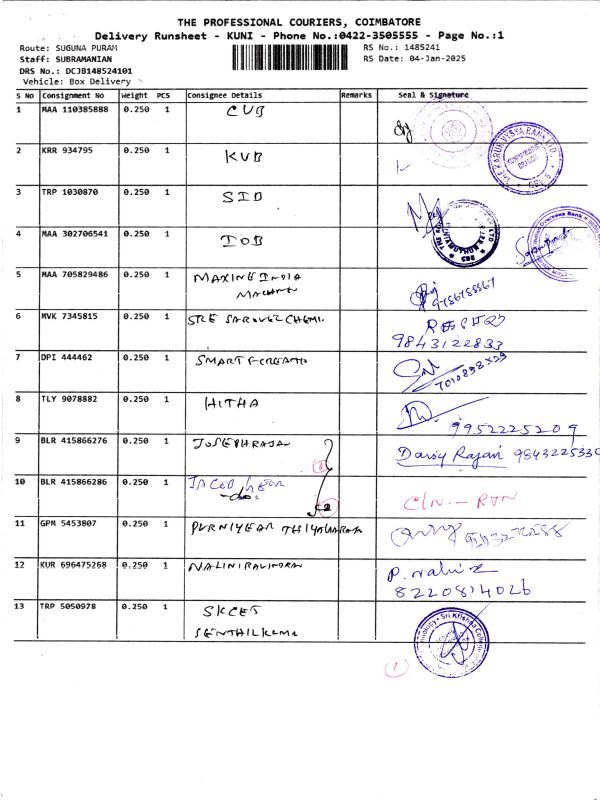 THE PROFESSIONAL COURIERS, COIMBATORE
Delivery Runsheet - KUNI - Phone No.:0422-3505555 - Page No.:1
Route: SUGUNA PURAM RS No.: 1485241
Staff: SUBRAMANIAN RS Date: 04-Jan-2025
DRS No.: DCJB148524101
Vehicle: Box Delivery
S No Consignment No Weight PCS Consignee Details Remarks Seal & Signature
1 MAA 110385888 0.250 1 CUB
2 KRR 934795 0.250 1 KVB
THE KARUR VYSYA BANK LTD.
3 TRP 1030870 0.250 1 SIB
4 MAA 302706541 0.250 1 IOB
Overseas Bank
5 MAA 705829486 0.250 1 MAXINE INDIA
9786788867
6 MVK 7345815 0.250 1 SRE SAROVER CHEMI
9843122833
7 DPI 444462 0.250 1 SMART F-CREATIO
8 TLY 9078882 0.250 1 HITHA
9952225209
9 BLR 415866276 0.250 1 JOSEPHRAJA
9843225330
10 BLR 415866286 0.250 1 JACOB
-do-
11 GPM 5453807 0.250 1
12 KUR 696475268 0.250 1 NALINIRAVINDRAN
P. Nalini
8220814026
13 TRP 5050978 0.250 1 SKCET
SENTHILKUMA
Sri Krishna College
1